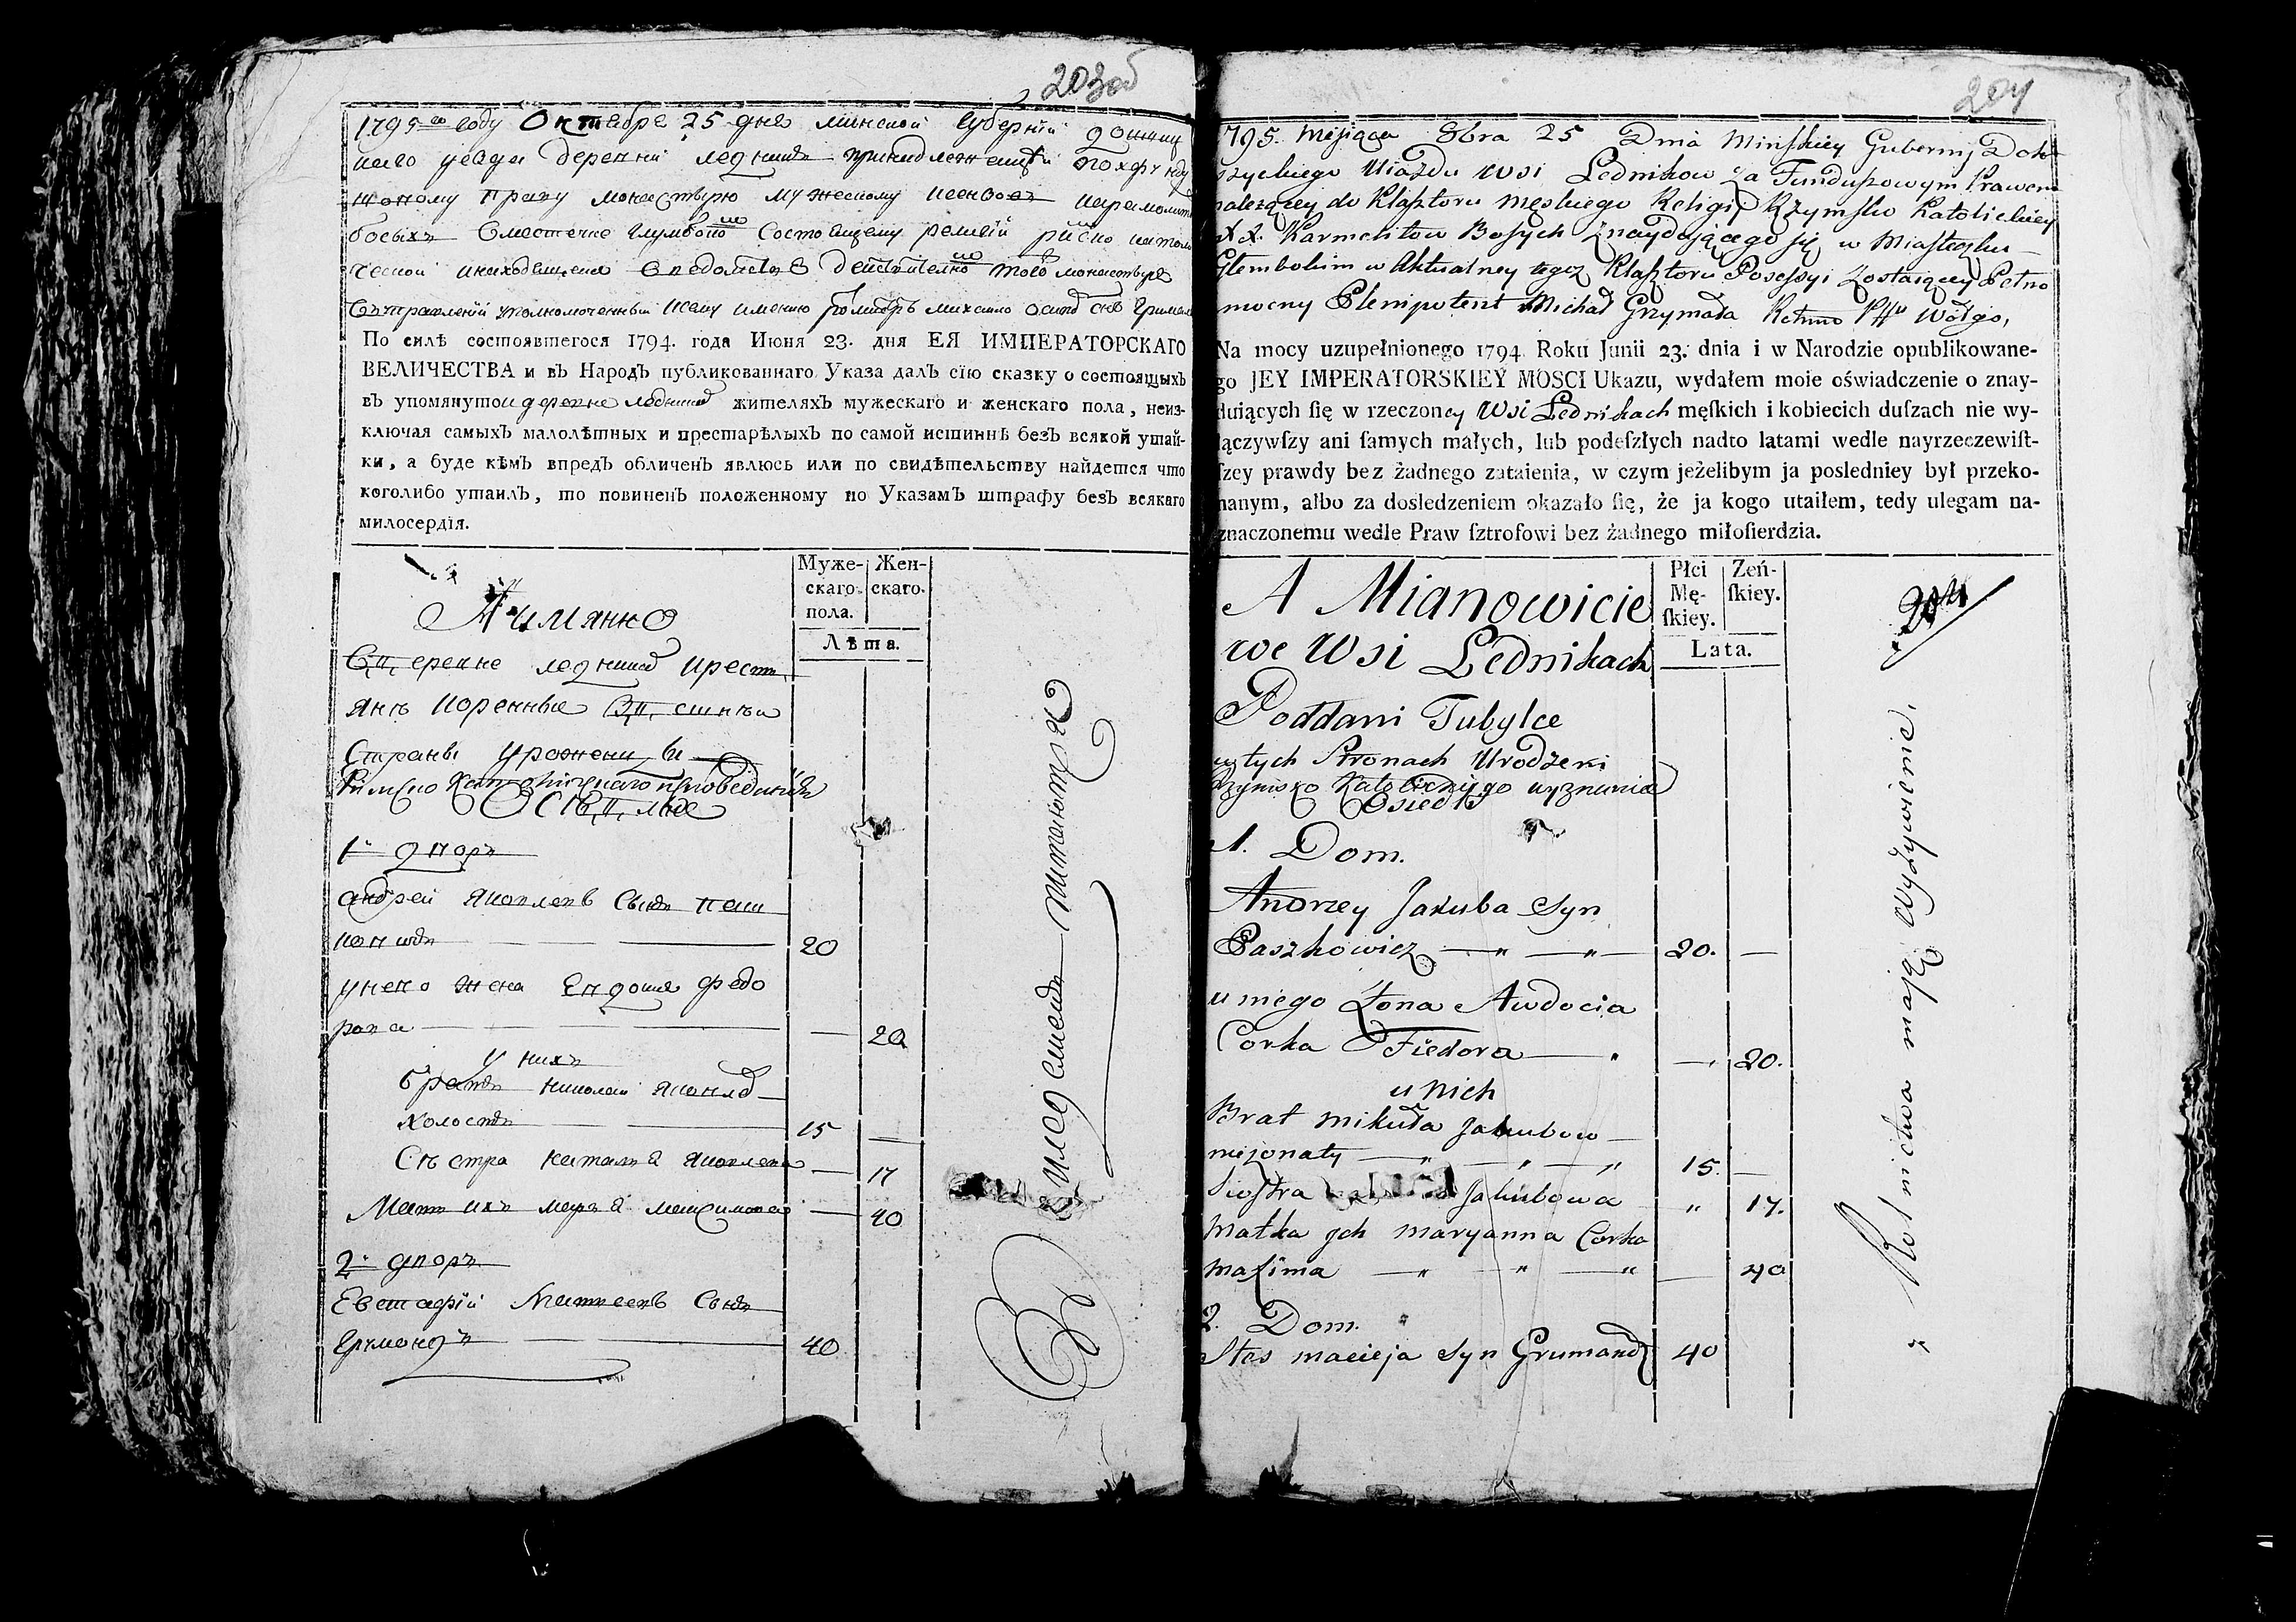 203об
1795го году Октября 25 дня минской губернїи докшиц
каго уезда деревни ледники принадлежащей пофунду
шовому праву монастырю мужескому ксендзовъ кармелит
босыхъ вместечке глубокомъ состоящему религїи риско католи
ческой инаходящеися введомстве действително того монастыря
Вуправленїи полномоченный ксему имению михаило сынъ
По силѣ состоявшегося 1794. года Июня 23. дня ЕЯ ИМПЕРАТОРСКАГО
ВЕЛИЧЕСТВА и въ Народъ публикованнаго Указа далъ сїю сказку о состоящыхъ
въ упомянутой деревне ледники жителяхъ мужескаго и женскаго пола, неиз-
ключая самыхъ малолѣтныхъ и престарѣлыхъ по самой истиннѣ безъ всякой утай-
ки, а буде кѣмъ впредъ обличенъ явлюсь или по свидѣтельству найдется что
коголибо утаилъ, то повиненъ положенному по Указамъ штрафу безъ всякаго
милосердїя.
Муже-скаго пола. Жен-скаго.
Лѣта.
Аимянно
Вдеревне ледники крест
янъ коренные здешнъи
Страны урожени
Римско Католическаго исповедания
Оселые
1й дворъ
андрей яковлевъ сынъ паш
ковичъ — — — 20
унево жена Евдошя федо
рова — — — — 20
у нихъ
братъ николай яковлев
холостъ — — 15 —
Сестра наталя яковлева — 17
Мать ихъ маря максимова — 40
2й дворъ
Евстафїй Матвеевъ сынъ
Ермондъ — — 40
питаютца
204
1795. Miesiąca 8bra 25 Dnia Minskiey Gubernij Dok
szyckiego Uiazdu Wsi Lednikow za Funduszowym Prawem
należącey do Klasztoru męskiego Religij Rzymsko Katolickiey
XX. Karmelitow Bosych znayduiącego się w Miasteczku
Głembokim w Aktualney tegoż Klasztoru Posessyi zostaiącey Pełno
mocny Plenipotent Michał Grzymała
Na mocy uzupełnionego 1794 Roku Junii 23. dnia i w Narodzie opublikowane-
go JEY IMPERATORSKIEY MOSCI Ukazu, wydałem moie oświadczenie o znay-
duiących ſię w rzeczoney Wsi Lednikach męſkich i kobiecich duſzach nie wy-
łączywſzy ani ſamych małych, lub podeſzłych nadto latami wedle nayrzeczewiſt-
ſzey prawdy bez żadnego zataienia, w czym jeżelibym ja posledniey był przeko-
nanym, albo za dosledzeniem okazało ſię, że ja kogo utaiłem, tedy ulegam na-
znaczonemu wedle Praw ſztrofowi bez żadnego miłoſierdzia.
Płci Mę-ſkiey. Zeń-ſkiey.
Lata.
A Mianowicie
we Wsi Lednikach
Poddani Tubylce
w tych Stronach Urodzeni
Rzymsko Katolickiego wyznania
Osiedli
1. Dom.
Andrzey Jakuba Syn
Paszkowicz — „ — „ — 20. —
u niego Żona Awdocia
Corka Fiedora — — 20.
u nich
Brat mikuła Jakubow —
nieżonaty — „ — „ — „ 15. —
Siostra Jakubowa „ 17.
Matka ych maryanna Corka
maxima — „ — „ — „ — 40
2. Dom.
Stas macieja Syn Grumandz 40
204
Rolnictwa mają wyżywienie.